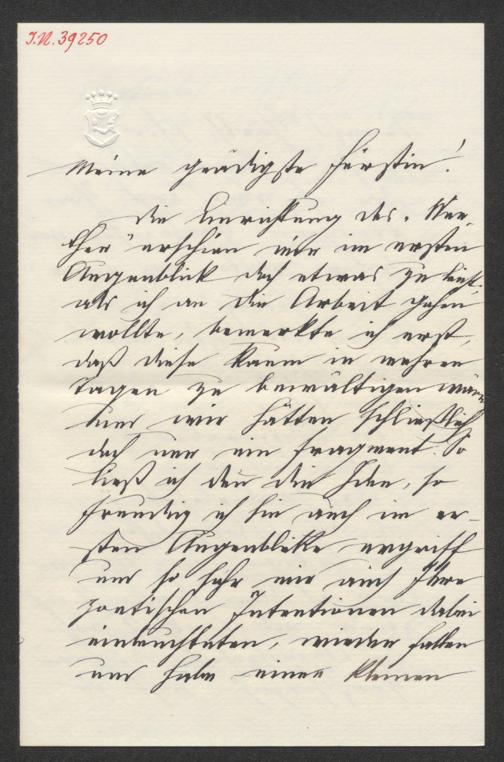 J.N. 39250
Meine gnädigste Fürstin!
Die Einrichtung des "Wer-
ther" erschien mir im ersten
Augenblick doch etwas zu
als ich an die Arbeit gehen
wollte, bemerkte ich erst,
daß diese kaum in mehren
Tagen zu bewältigen wäre
und wir hätten schließlich
doch nur ein Fragment. So
ließ ich denn die Idee, so
freudig ich sie auch im er-
sten Augenblicke ergriff
und so sehr mir auch Ihre
poetischen Intentionen dabei
einleuchteten, wieder fallen
und habe einen kleinen